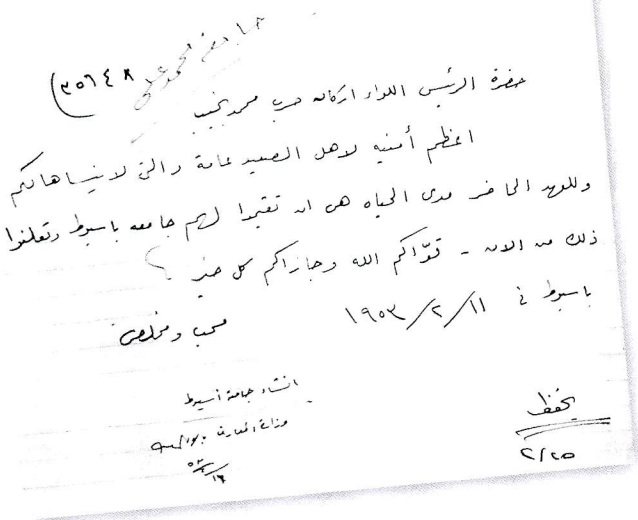 جامعة محمد علي
(٣٥٦٤٨
حضرة الرئيس اللواء اركان حرب محمد نجيب
اعظم أمنيه لاهل الصعيد عامة والتى لا ينساها لكم
وللعهد الحاضر مدى الحياه هى ان تقيموا لهم جامعه باسيوط وتعلنوا
ذلك من الان - قوّاكم الله وجازاكم كل خير
باسيوط فى ١١/٢/١٩٥٣
محب ومخلص
انشاء جامعة أسيوط
وزارة المعارف
يحفظ
٢/٢٥